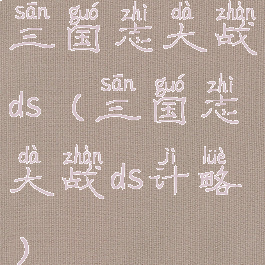 sān guó zhì dà zhàn
三国志大战
sān guó zhì
ds（三国志
dà zhàn jì lüè
大战ds计略
）